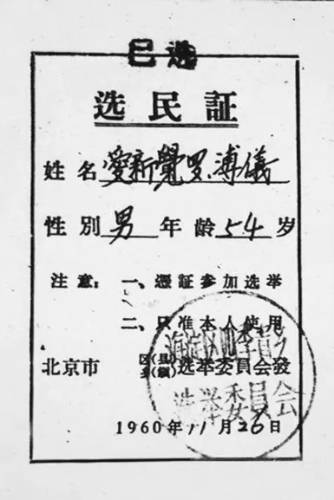 已选
选民証
姓名 愛新覺罗·溥儀
性別 男 年龄 54 岁
注意：一、憑証参加选举
二、只准本人使用
北京市 区(县)乡(镇) 选举委員会發
1960年11月26日
选举委員会